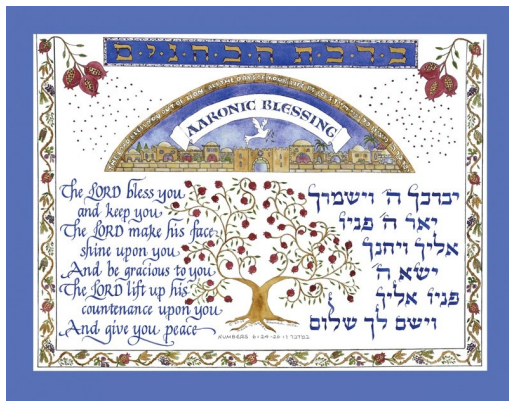 ברכת הכהנים
BLESS YOU OUT OF ZION ALL THE DAYS OF YOUR LIFE
AARONIC BLESSING
The LORD bless you
and keep you
The LORD make his face
shine upon you
And be gracious to you
The LORD lift up his
countenance upon you
And give you peace
יברכך ה' וישמרך
יאר ה' פניו
אליך ויחנך
ישא ה'
פניו אליך
וישם לך שלום
NUMBERS 6:24-26 במדבר